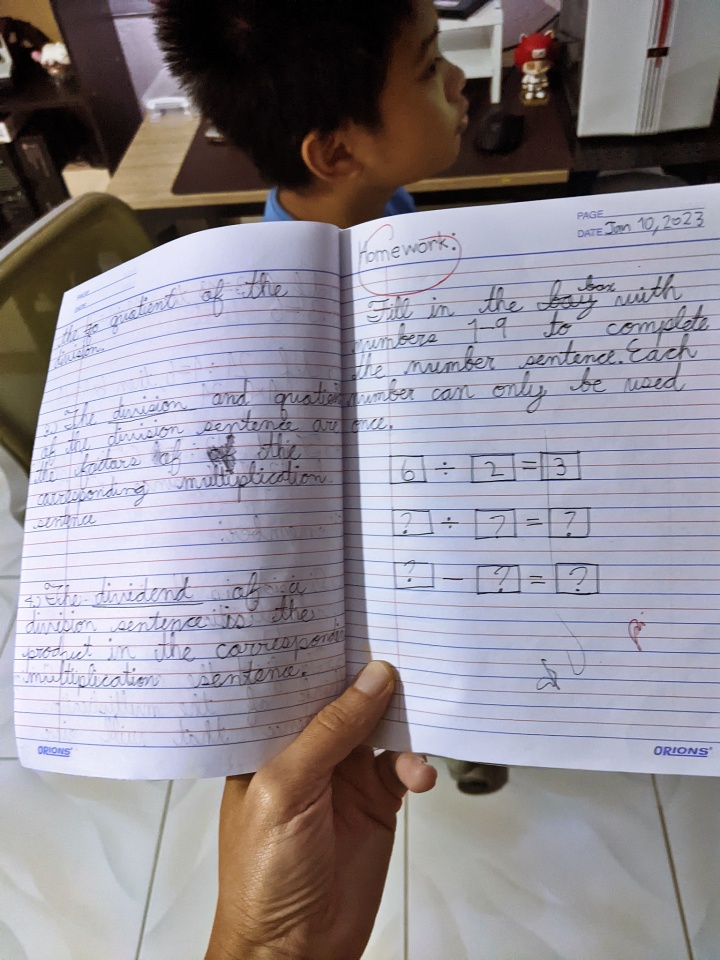 the quatient of the
division.
3.) The division and quatient
of the division sentence are
the factors of of the
carresponding multiplication
sentence
4.) The dividend af a
division sentence is the
product in the carresponding
multiplication sentence.
ORIONS
PAGE
DATE Jan 10, 2023
Homework:
Fill in the bay box with
numbers 1-9 to complete
the number sentence. Each
number can only be used
once.
6 ÷ 2 = 3
? ÷ ? = ?
? - ? = ?
ORIONS